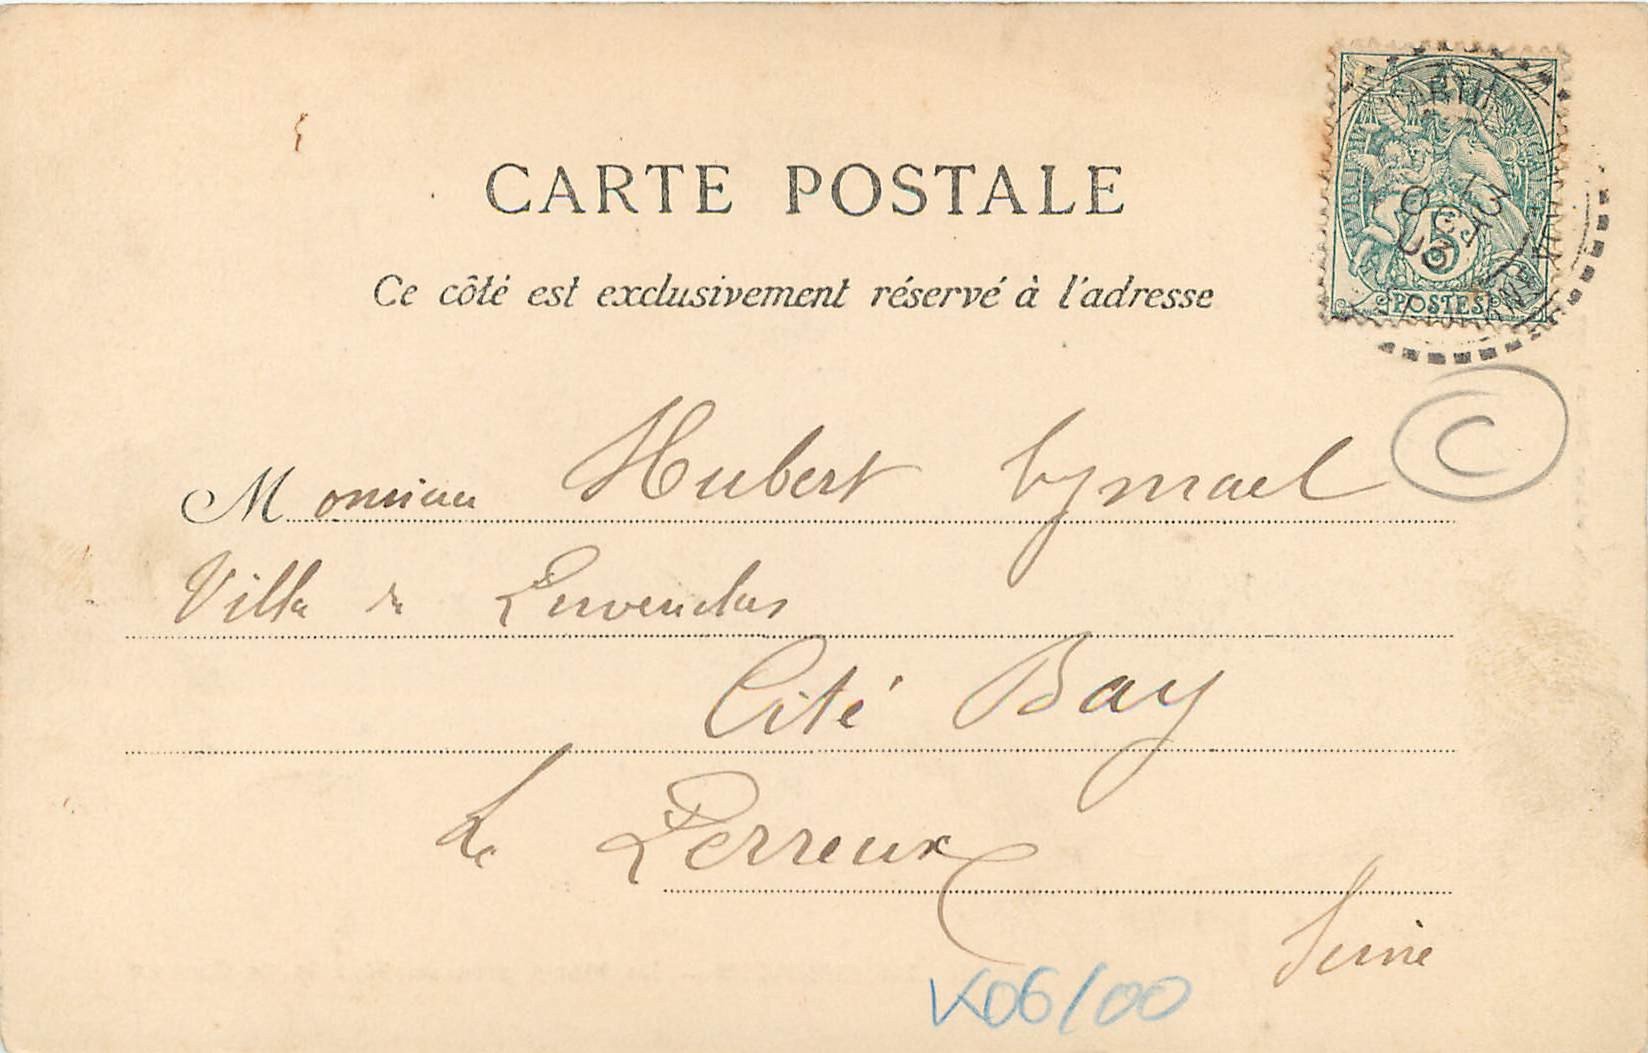 CARTE POSTALE
Ce côté est exclusivement réservé à l'adresse
POSTES
5
13
OCT
03
Monsieur Hubert Cymael
Villa de
Cité Bay
Le Perreux
Seine
C
K06/00